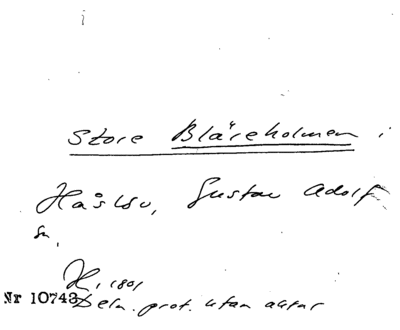 Store Bläreholmen i
Håslöv, Gustav Adolf
sn,
K, 1801
Nr 10743 Deln. prot. utan aktnr